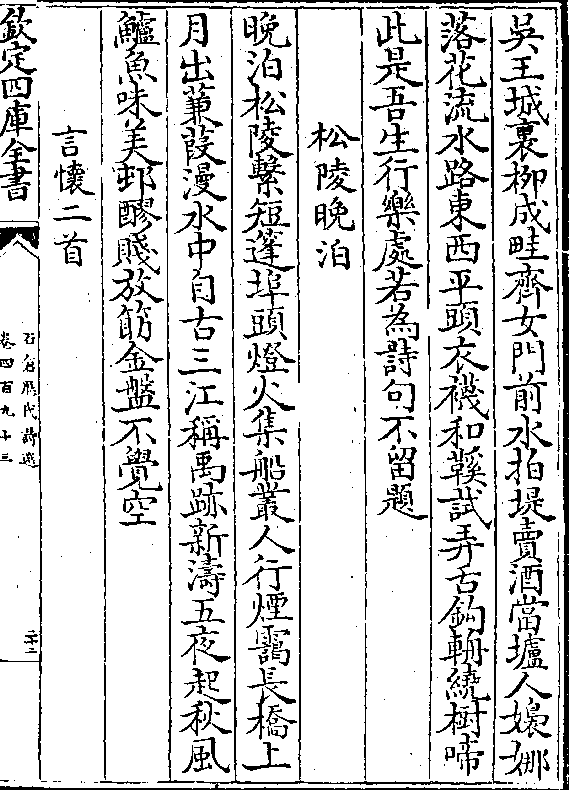 吳王城裏柳成畦齊女門前水拍堤賣酒當壚人嬝娜
落花流水路東西平頭衣襪和鞵試弄舌鉤輈繞樹啼
此是吾生行樂處若為詩句不留題
松陵晚泊
晚泊松陵繫短蓬埠頭燈火集船叢人行煙靄長橋上
月出蒹葭漫水中自古三江稱禹跡新濤五夜起秋風
鱸魚味美邨醪賤放筯金盤不覺空
言懷二首
欽定四庫全書
石倉歴代詩選
卷四百九十三
二十二